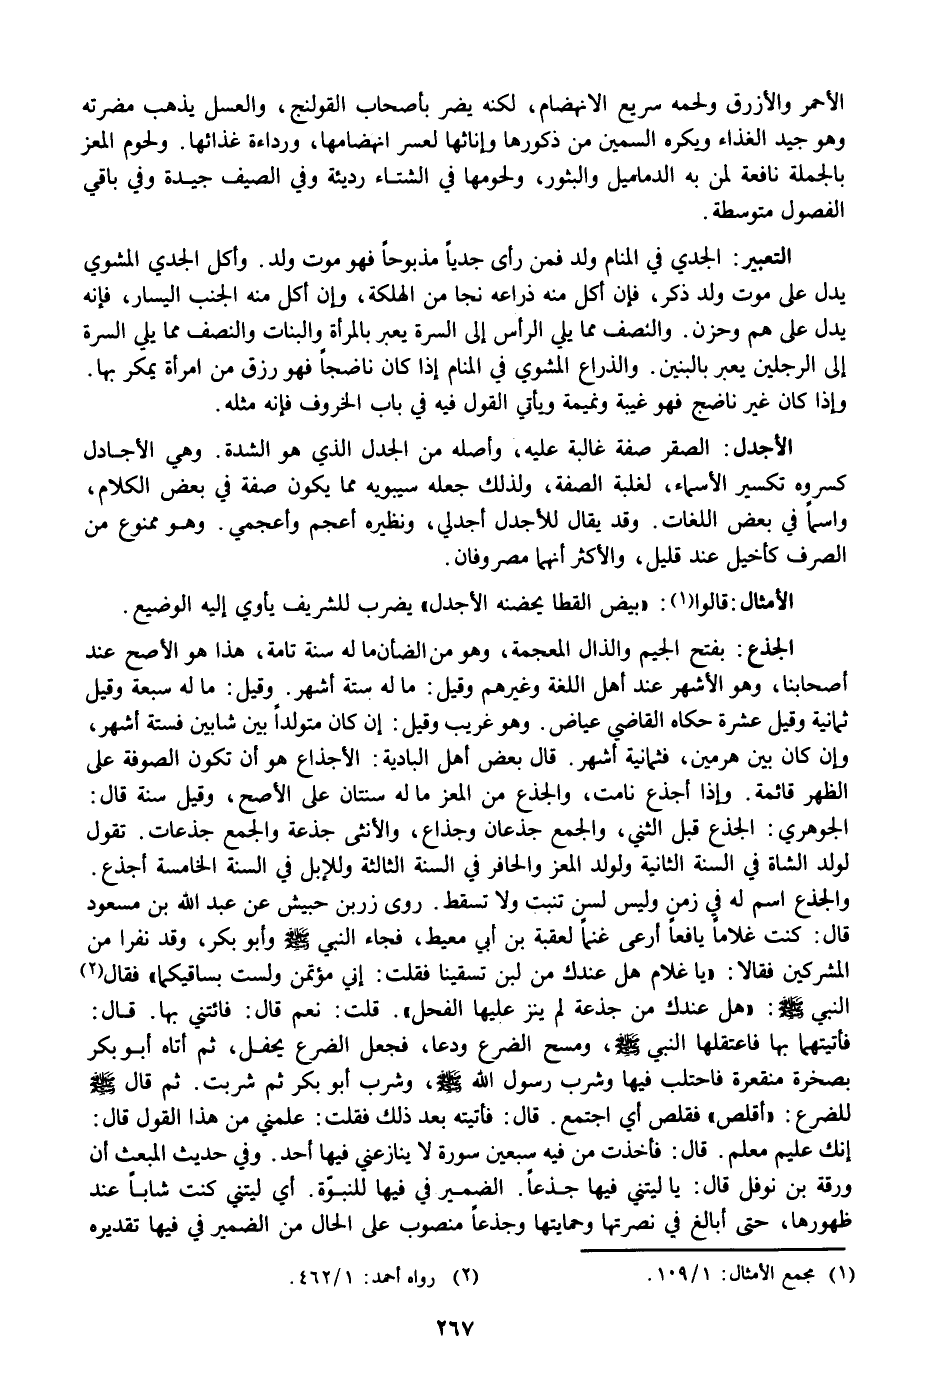 الأحمر والأزرق ولحمه سريع الانهضام، لكنه يضر بأصحاب القولنج، والعسل يذهب مضرته
وهو جيد الغذاء ويكره السمين من ذكورها وإناثها لعسر انهضامها، ورداءة غذائها. ولحوم المعز
بالجملة نافعة لمن به الدماميل والبثور، ولحومها في الشتاء رديئة وفي الصيف جيدة وفي باقي
الفصول متوسطة.
التعبير: الجدي في المنام ولد فمن رأى جدياً مذبوحاً فهو موت ولد. وأكل الجدي المشوي
يدل على موت ولد ذكر، فإن أكل منه ذراعه نجا من الهلكة، وإن أكل منه الجنب اليسار، فإنه
يدل على هم وحزن. والنصف مما يلي الرأس إلى السرة يعبر بالمرأة والبنات والنصف مما يلي السرة
إلى الرجلين يعبر بالبنين. والذراع المشوي في المنام إذا كان ناضجاً فهو رزق من امرأة يمكر بها.
وإذا كان غير ناضج فهو غيبة ونميمة ويأتي القول فيه في باب الخروف فإنه مثله.
الأجدل: الصقر صفة غالبة عليه، وأصله من الجدل الذي هو الشدة. وهي الأجادل
كسروه تكسير الأسماء، لغلبة الصفة، ولذلك جعله سيبويه مما يكون صفة في بعض الكلام،
واسماً في بعض اللغات. وقد يقال للأجدل أجدلي، ونظيره أعجم وأعجمي. وهو ممنوع من
الصرف كأخيل عند قليل، والأكثر أنهما مصروفان.
الأمثال: قالوا(١): «بيض القطا يحضنه الأجدل» يضرب للشريف يأوي إليه الوضيع.
الجذع: بفتح الجيم والذال المعجمة، وهو من الضأن ما له سنة تامة، هذا هو الأصح عند
أصحابنا، وهو الأشهر عند أهل اللغة وغيرهم وقيل: ما له ستة أشهر. وقيل: ما له سبعة وقيل
ثمانية وقيل عشرة حكاه القاضي عياض. وهو غريب وقيل: إن كان متولداً بين شابين فستة أشهر،
وإن كان بين هرمين، فثمانية أشهر. قال بعض أهل البادية: الأجذاع هو أن تكون الصوفة على
الظهر قائمة. وإذا أجذع نامت، والجذع من المعز ما له سنتان على الأصح، وقيل سنة قال:
الجوهري: الجذع قبل الثني، والجمع جذعان وجذاع، والأنثى جذعة والجمع جذعات. تقول
لولد الشاة في السنة الثانية ولولد المعز والحافر في السنة الثالثة وللإبل في السنة الخامسة أجذع.
والجذع اسم له في زمن وليس لسن تنبت ولا تسقط. روى زر بن حبيش عن عبد الله بن مسعود
قال: كنت غلاماً يافعاً أرعى غنماً لعقبة بن أبي معيط، فجاء النبي ﷺ وأبو بكر، وقد نفرا من
المشركين فقالا: «يا غلام هل عندك من لبن تسقينا فقلت: إني مؤتمن ولست بساقيكما» فقال(٢)
النبي ﷺ: «هل عندك من جذعة لم ينز عليها الفحل». قلت: نعم قال: فائتني بها. قال:
فأتيتهما بها فاعتقلها النبي ﷺ، ومسح الضرع ودعا، فجعل الضرع يحفل، ثم أتاه أبو بكر
بصخرة منقعرة فاحتلب فيها وشرب رسول الله ﷺ، وشرب أبو بكر ثم شربت. ثم قال ﷺ
للضرع: «أقلص» فقلص أي اجتمع. قال: فأتيته بعد ذلك فقلت: علمني من هذا القول قال:
إنك عليم معلم. قال: فأخذت من فيه سبعين سورة لا ينازعني فيها أحد. وفي حديث المبعث أن
ورقة بن نوفل قال: يا ليتني فيها جذعاً. الضمير في فيها للنبوّة. أي ليتني كنت شاباً عند
ظهورها، حتى أبالغ في نصرتها وحمايتها وجذعاً منصوب على الحال من الضمير في فيها تقديره
(١) مجمع الأمثال: ١٠٩/١.
(٢) رواه أحمد: ٤٦٢/١.
٢٦٧